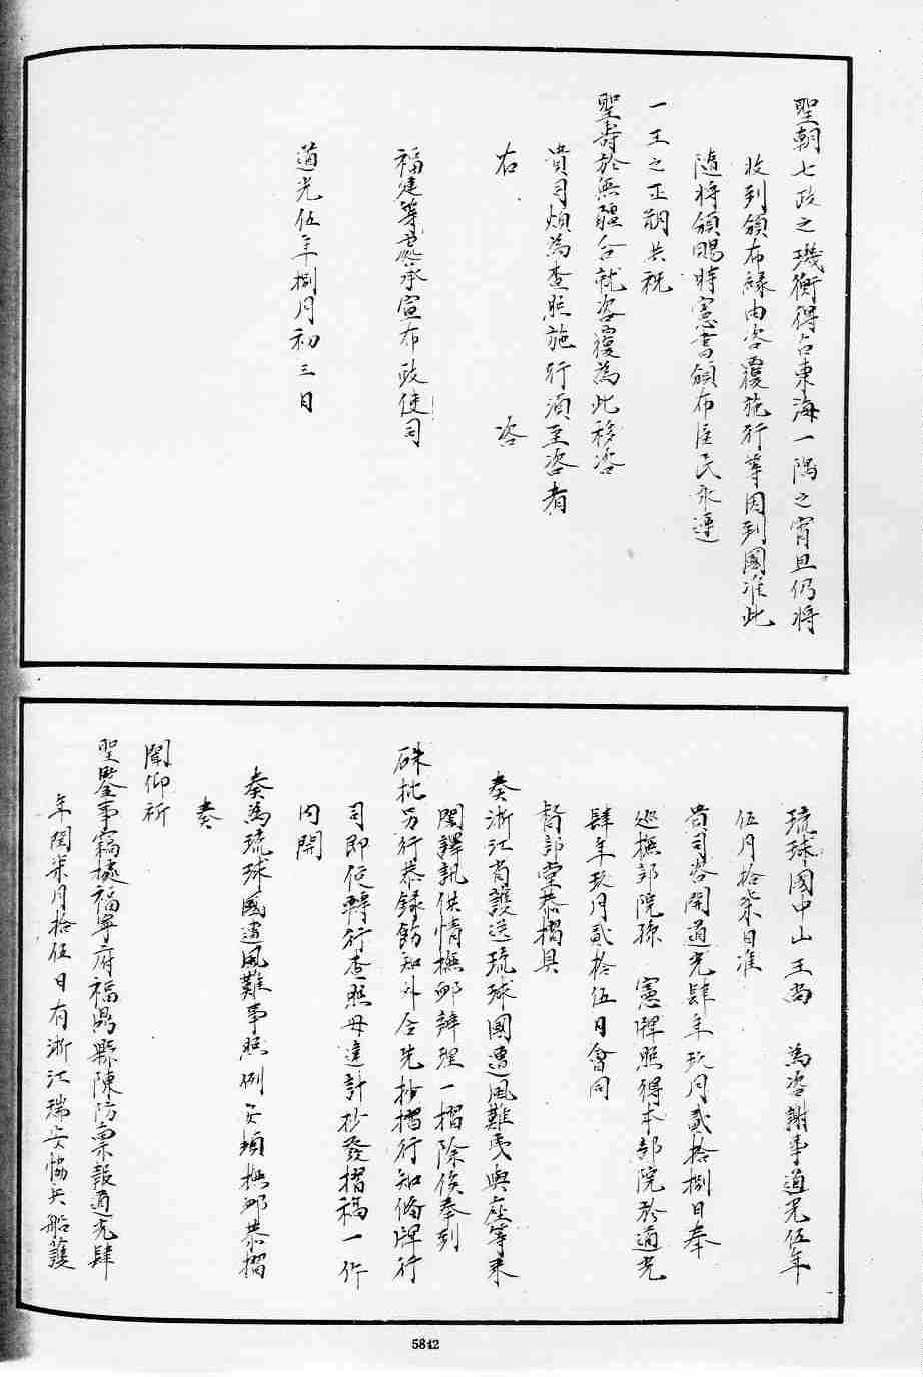 聖朝七政之璣衡得占東海一隅之宵旦仍將
收到頒布緣由咨覆施行等因到國准此
隨將頒賜時憲書頒布臣民永遵
一王之正朔共祝
聖壽於無疆合就咨覆為此移咨
貴司煩為查照施行須至咨者
右　咨
福建等處承宣布政使司
道光伍年捌月初三日
琉球國中山王尚　為咨謝事道光伍年
伍月拾柒日准
貴司咨開道光肆年玖月貳拾捌日奉
巡撫部院孫　憲牌照得本部院於道光
肆年玖月貳拾伍日會同
督部堂恭摺具
奏浙江省護送琉球國遭風難夷與座等來
閩譯訊供情撫卹辦理一摺除俟奉到
硃批另行恭錄飭知外合先抄摺行知備牌行
司即便轉行查照毋違計抄發摺稿一件
內開
奏為琉球國遭風難事照例安頓撫卹恭摺
奏
聞仰祈
聖鑒事竊據福寧府福鼎縣陳防稟報道光肆
年閏柒月拾伍日有浙江瑞安協兵船護
5842